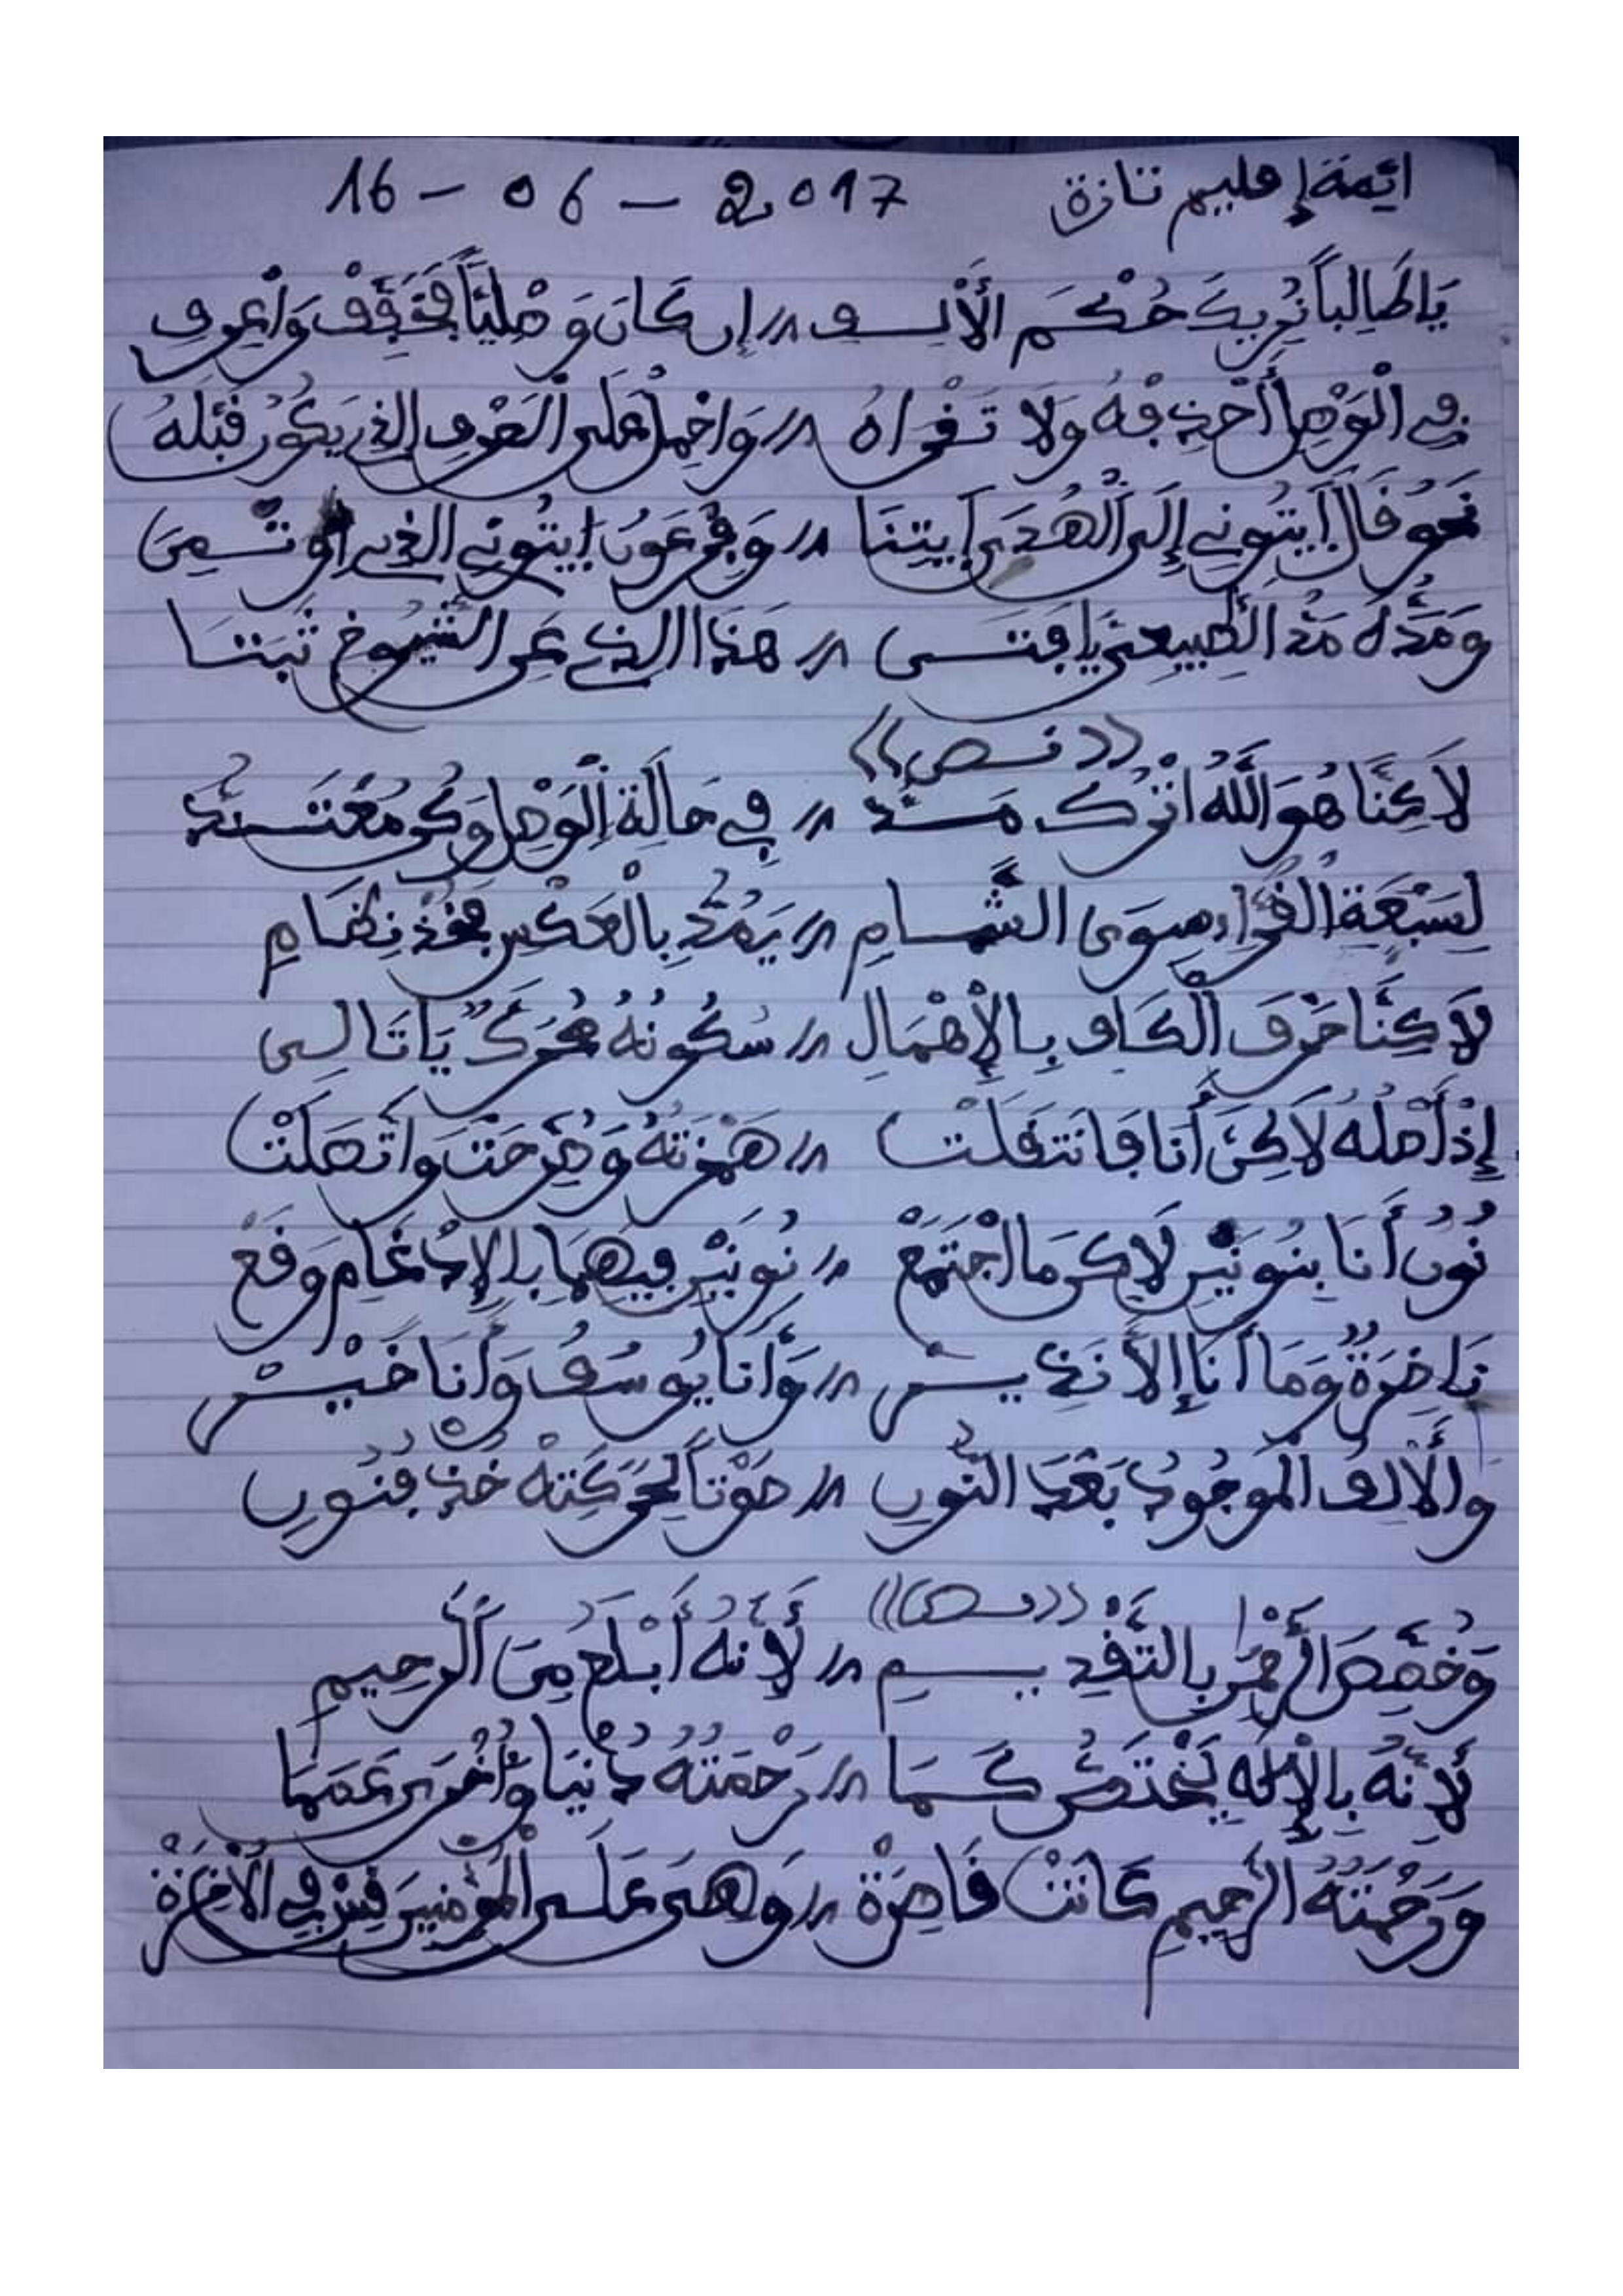 ائمة إقليم تازة 2017 - 06 - 16
يَا طَالِباً نُرِيكَ حُكْمَ الأَلِفِ // إن كَانَ وَصْلِيّاً فَحَقِّقْ وَاعْرِفِ
فِي الْوَصْلِ أَحْذِفْهُ وَلَا تَقْرَاهُ // وَاحْمِلْ عَلَى الْحَرْفِ الذِي يَكُونُ قَبْلَهُ
نَحْوُ قَالَ ايتُونِي إِلَى الْهُدَى ايتِنَا // وَفِرْعَوْنُ ايتُونِي الذِي اوتُمِنَ
وَمَدُّهُ مَدُّ الطَّبِيعِيِّ يَا فَتَى // هَذَا الذِي عَنِ الشُّيُوخِ ثَبَتَا
((نص))
لَاكِنَّا هُوَ اللَّهُ اتْرُكْ مَدَّ // فِي حَالَةِ الْوَصْلِ وَكُن مُعْتَدّ
لِسَبْعَةِ الْقُرَّاءِ سِوَى الشَّامِ // يَمُدُّ بِالْعَكْسِ فَخُذْ نِظَامِ
لَاكِنَّا حَرْفَ الْكَافِ بِالْإِهْمَالِ // سُكُونُهُ مُحَرَّكٌ يَا تَالِي
إِذْ أَصْلُهُ لَاكِنَ أَنَا فَانتَقَلَتْ // هَمْزَتُهُ وَطُرِحَتْ وَاتَّصَلَتْ
نُونُ أَنَا بِنُونَيْنِ لَاكِن مَا اجْتَمَعْ // نُونَيْنِ فِيهِمَا بِالْإِدْغَامِ وَقَعْ
نَاخِرَةً وَمَا أَنَا إِلَّا نَذِيرُ // وَأَنَا يُوسُفُ وَأَنَا خَيْرُ
وَالْأَلِفُ الْمَوْجُودُ بَعْدَ النُّونِ // صَوْتاً لِحَرَكَتِهْ خُذْ فُنُونِ
((نص))
وَخُصِّصَ الرَّحْمَنُ بِالتَّقْدِيمِ // لِأَنَّهُ أَبْلَغُ مِنَ الرَّحِيمِ
لِأَنَّهُ بِالْإِلَهِ يَخْتَصُّ كَمَا // رَحْمَتُهُ دُنْيَا وَأُخْرَى عَمَّمَا
وَرَحْمَتُهُ الرَّحِيمِ كَانَتْ قَاصِرَةْ // وَهِيَ عَلَى الْمُؤْمِنِينَ قَيْدٌ فِي الْآخِرَةْ